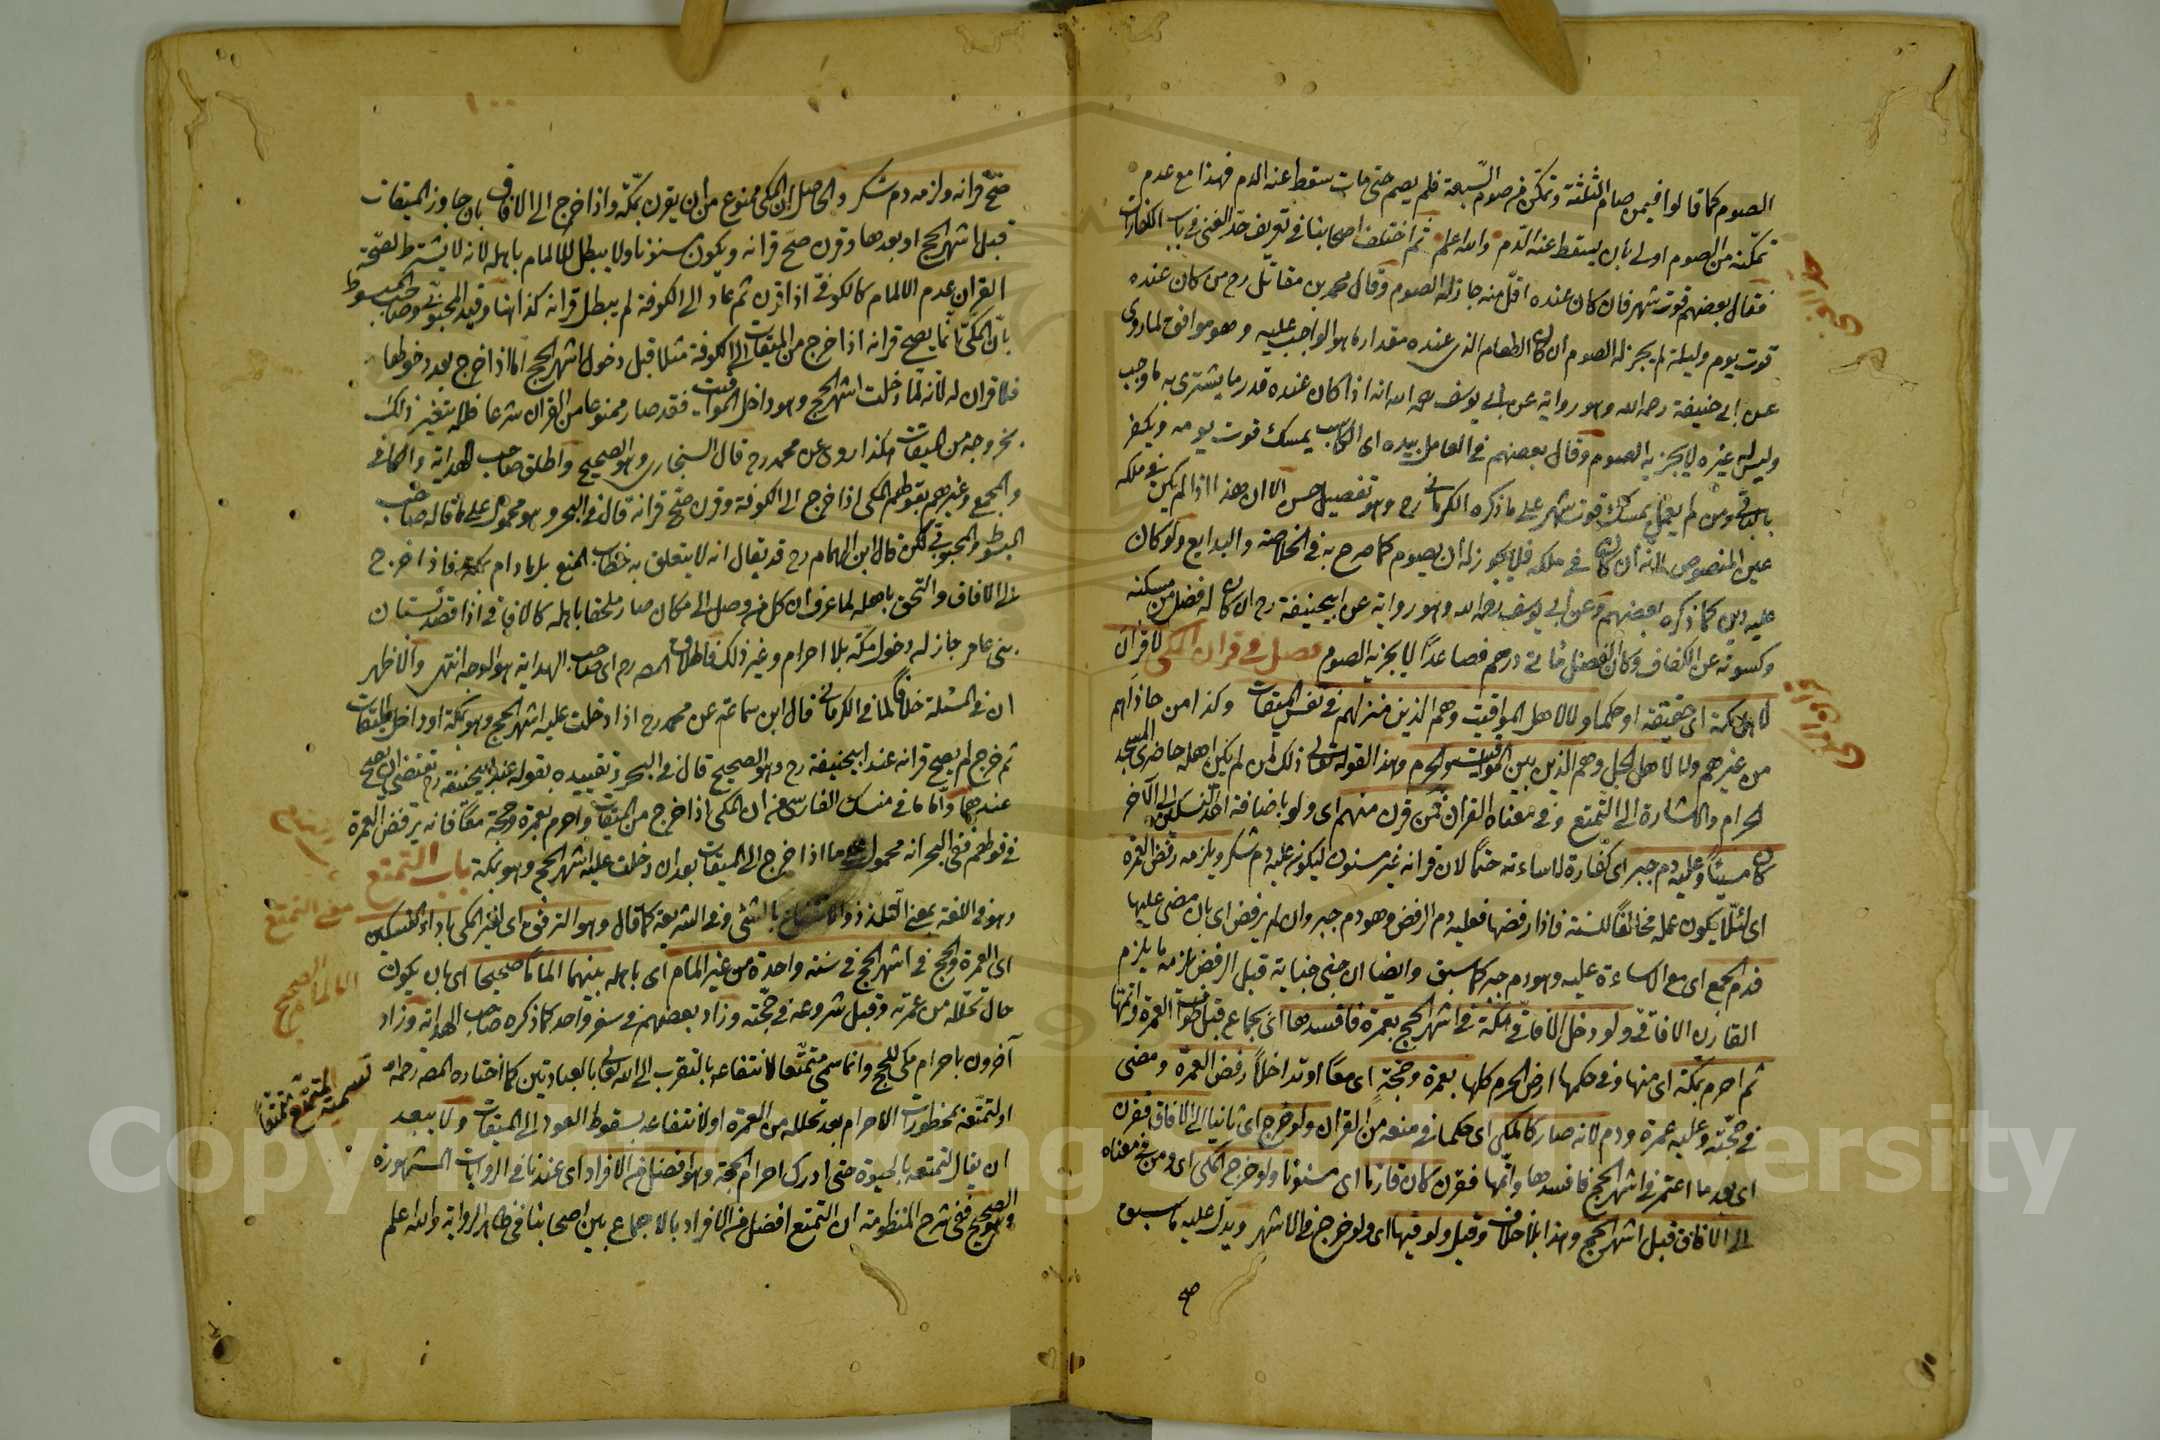 الصوم كما قالوا فيمن صام الثلثة وتمكن من صوم السبعة فلم يصم حتى مات سقط عنه الدم فهذا مع عدم
تمكنه من الصوم اولى بان يسقط عنه الدم والله اعلم ثم اختلف اصحابنا في تعريف حد الغنى في باب الكفارات
فقال بعضهم قوت شهر فان كان عنده اقل منه جاز له الصوم وقال محمد بن مقاتل رح من كان عنده
قوت يوم وليلة لم يجز له الصوم ان كان الطعام الذي عنده مقدار ما هو الواجب عليه وهو موافق لما روى
عن ابي حنيفة رحمه الله وهو رواية عن ابي يوسف رحمه الله انه اذا كان عنده قدر ما يشترى به ما وجب
وليس له غيره لا يجزيه الصوم وقال بعضهم في العامل بيده اى الكاسب يمسك قوت يومه ويكفر
بالباقى ومن لم يعمل يمسك قوت شهر على ما ذكره الكرمانى رح وهو تفصيل حسن الا ان هذا اذا لم يكن في ملكه
عين المنصوص لانه ان كان في ملكه فلا يجوز له ان يصوم كما صرح به في الخلاصة والبدايع ولو كان
عليه دين كما ذكره بعضهم وعن ابي يوسف رحمه الله وهو رواية عن ابيحنيفة رح ان كان له فضل من مسكنه
وكسوته عن الكفاف وكان الفضل مائتى درهم فصاعدًا لا يجزيه الصوم فصل في قران المكى لا قران
لاهل مكة اى حقيقة او حكما ولا لاهل المواقيت وهم الذين منزلهم في نفس الميقات وكذا من حاذاهم
من غيرهم ولا لاهل الحل وهم الذين بين المواقيت والحرم وهذا لقوله تعالى ذلك لمن لم يكن اهله حاضرى المسجد
الحرام والاشارة الى التمتع وفي معناه القران فمن قرن منهم اى ولو باضافة احد النسكين الى الآخر
كان مسيئًا وعليه دم جبر اى كفارة لاساءته حتمًا لان قرانه غير مسنون ليكون عليه دم شكر ويلزمه رفض العمرة
اى لئلا يكون عمله مخالفًا للسنة فاذا رفضها فعليه دم الرفض وهو دم جبر وان لم يرفض اى بان مضى عليها
فدم الجمع اى مع الاساءة عليه وهو دم جبر كما سبق وايضا ان جنى جناية قبل الرفض لزمه ما يلزم
القارن الافاقى ولو دخل الافاقى مكة في اشهر الحج بعمرة فافسدها اى بجماع قبل طواف العمرة واتمها
ثم احرم بمكة اى منها وفي حكمها ارض الحرم كلها بعمرة وحجة اى معًا او تداخلاً رفض العمرة ومضى
في حجته وعليه عمرة ودم لانه صار كالمكى اى حكما في منعه من القران ولو خرج اى ثانيا الى الافاق فقرن
اى بعد ما اعتمر في اشهر الحج فافسدها واتمها فقرن كان قارنا اى مسنونا ولو خرج المكى اى ومن في معناه
الى الافاق قبل اشهر الحج وهذا بلا خلاف وقيل ولو فيها اى ولو خرج في الاشهر ويدل عليه ما سبق
صح قرانه ولزمه دم شكر والحاصل ان المكى ممنوع من ان يقرن بمكة واذا خرج الى الافاق بان جاوز الميقات
قبل اشهر الحج او بعدها وقرن صح قرانه ويكون مسنونا ولا يبطل الالمام باهله لانه لا يشترط لصحة
القران عدم الالمام كالكوفى اذا قرن ثم عاد الى الكوفة لم يبطل قرانه كذا هنا وقيد المحبوبى وصاحب المبسوط
بان المكى انما يصح قرانه اذا خرج من الميقات الى الكوفة مثلا قبل دخول اشهر الحج اما اذا خرج بعد دخولها
فلا قران له لانه لما دخلت اشهر الحج وهو داخل المواقيت فقد صار ممنوعا من القران شرعا فلا يتغير ذلك
بخروجه من الميقات هكذا روى عن محمد رح قال السنجارى وهو الصحيح واطلق صاحب الهداية والكافى
والمجمع وغيرهم بقولهم المكى اذا خرج الى الكوفة وقرن صح قرانه قال في البحر وهو محمول على ما قاله صاحب
المبسوط والمحبوبى لكن قال ابن الهمام رح قد يقال انه لا يتعلق به خطاب المنع بل ما دام بمكة فاذا خرج
الى الافاق والتحق باهله لما عرف ان كل من وصل الى مكان صار ملحقا باهله كالافاقى اذا قصد بستان
بنى عامر جاز له دخول مكة بلا احرام وغير ذلك فاطلاق المصـ رح اى صاحب الهداية هو الوجه انتهى والاظهر
ان في المسئلة خلافًا لما في الكرمانى قال ابن سماعة عن محمد رح اذا دخلت عليه اشهر الحج وهو بمكة او داخل الميقات
ثم خرج لم يصح قرانه عند ابيحنيفة رح وهو الصحيح قال في البحر وتقييده بقوله عند ابيحنيفة رح يقتضى ان يصح
عندهما واما ما في منسك الفارسى من ان المكى اذا خرج من الميقات واحرم بعمرة وحجة معًا فانه يرفض العمرة
في قولهم ففى البحر انه محمول على ما اذا خرج الى الميقات بعد ان دخلت عليه اشهر الحج وهو بمكة باب التمتع
وهو في اللغة بمعنى التلذذ والانتفاع بالشئ وفي الشريعة كما قال وهو الترفق اى لغير المكى باداء النسكين
اى العمرة والحج في اشهر الحج في سنة واحدة من غير المام اى باهله بينهما الماما صحيحا اى بان يكون
حال تحلله من عمرته وقبل شروعه في حجته وزاد بعضهم في سفر واحد كما ذكره صاحب الهداية وزاد
آخرون باحرام مكى للحج وانما سمى متمتعا لانتفاعه بالتقرب الى الله تعالى بالعبادتين كما اختاره المصـ رحمه
او لتمتعه بمحظورات الاحرام بعد تحلله من العمرة او لانتفاعه بسقوط العود الى الميقات ولا يبعد
ان يقال لتمتعه بالحيوة حتى ادرك احرام الحجة وهو افضل من الافراد اى عندنا في الروايات المشهورة
وهو الصحيح ففى شرح المنظومة ان التمتع افضل من الافراد بالاجماع بين اصحابنا في ظاهر الرواية والله اعلم
معنى التمتع
الالمام الصحيح
تسمية المتمتع متمتعًا
Copyright © King Saud University